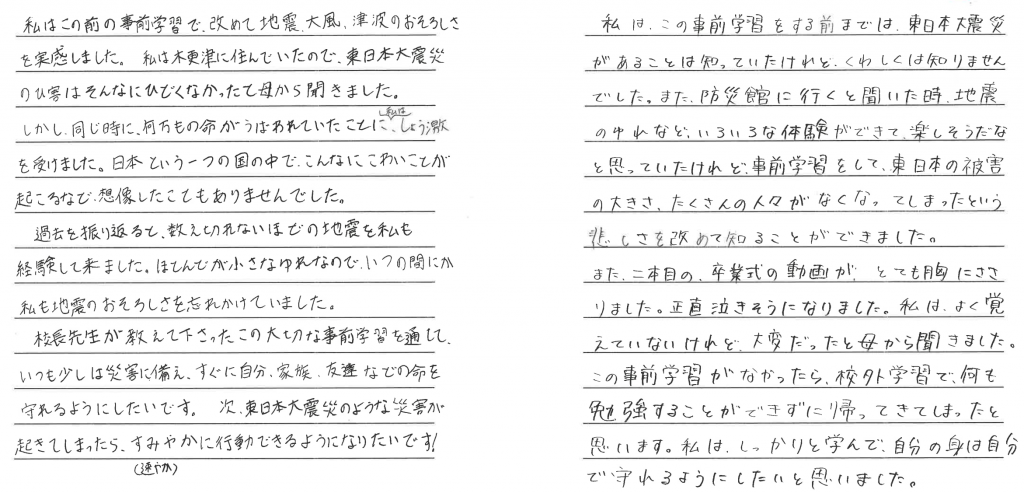 私はこの前の事前学習で、改めて地震、大風、津波のおそろしさ
を実感しました。 私は木更津に住んでいたので、東日本大震災
のひ害はそんなにひどくなかったて母から聞きました。
しかし、同じ時に、何万もの命がうばわれていたことに、私はしょう激
を受けました。日本という一つの国の中で、こんなにこわいことが
起こるなど、想像したこともありませんでした。
過去を振り返ると、数え切れないほどの地震を私も
経験して来ました。ほとんどが小さなゆれなので、いつの間にか
私も地震のおそろしさを忘れかけていました。
校長先生が教えて下さったこの大切な事前学習を通して、
いつも少しは災害に備え、すぐに自分、家族、友達などの命を
守れるようにしたいです。 次、東日本大震災のような災害が
起きてしまったら、すみやかに行動できるようになりたいです!
(速やか)
私は、この事前学習をする前までは、東日本大震災
があることは知っていたけれど、くわしくは知りません
でした。また、防災館に行くと聞いた時、地震
のゆれなど、いろいろな体験ができて、楽しそうだな
と思っていたけれど、事前学習をして、東日本の被害
の大きさ、たくさんの人々がなくなってしまったという
悲しさを改めて知ることができました。
また、二本目の、卒業式の動画が、とても胸にささ
りました。正直泣きそうになりました。私は、よく覚
えていないけれど、大変だったと母から聞きました。
この事前学習がなかったら、校外学習で、何も
勉強することができずに帰ってきてしまったと
思います。私は、しっかりと学んで、自分の身は自分
で守れるようにしたいと思いました。